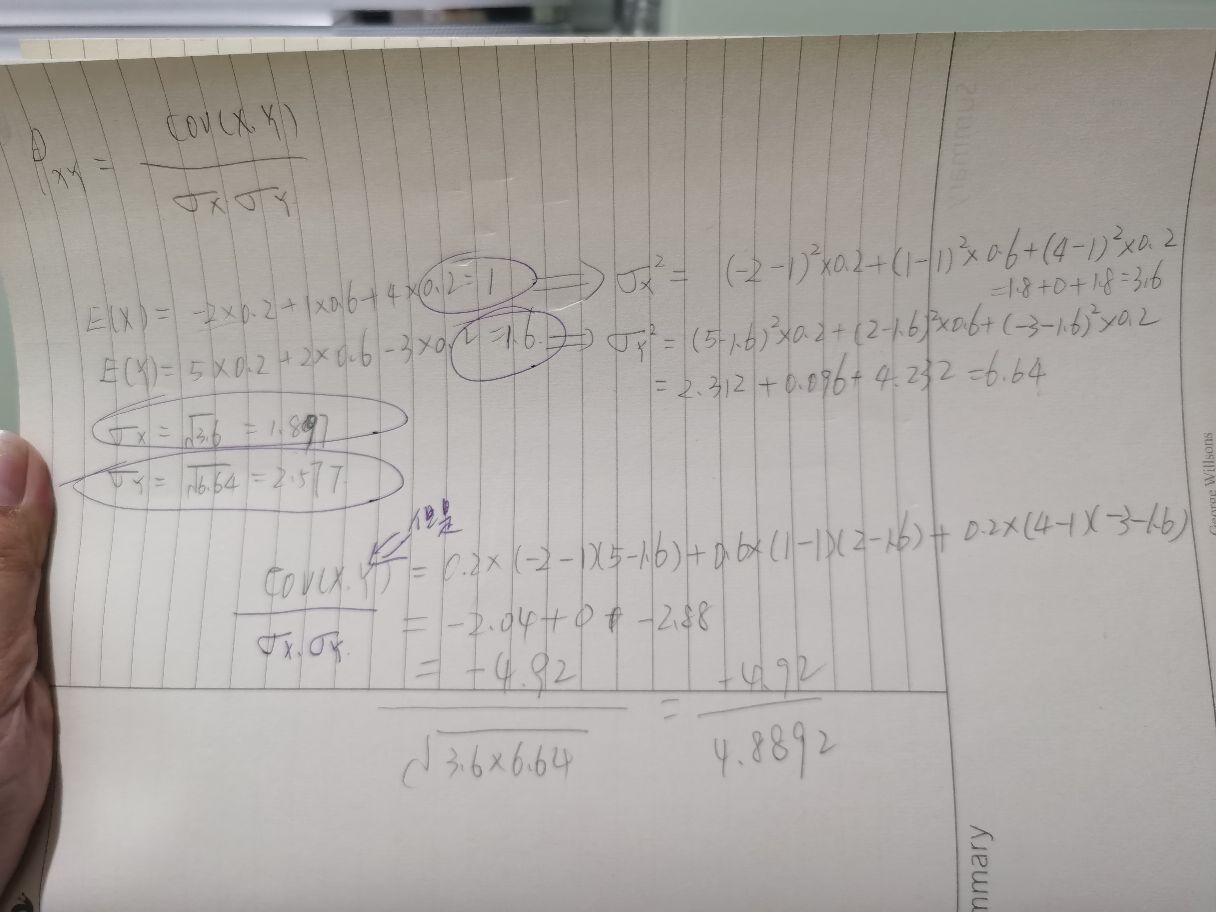 ρxy = COV(X.Y)
σx σY
E(X) = -2×0.2+1×0.6+4×0.2=1 ⇒ σx² = (-2-1)²×0.2+(1-1)²×0.6+(4-1)²×0.2
=1.8+0+1.8=3.6
E(Y)= 5×0.2+2×0.6-3×0.2=1.6. ⇒ σY²= (5-1.6)²×0.2+(2-1.6)²×0.6+(-3-1.6)²×0.2
= 2.312+0.096+4.232=6.64
σx = √3.6 = 1.897
σY = √6.64 = 2.577.
COV(X.Y) = 0.2×(-2-1)(5-1.6)+0.6×(1-1)(2-1.6)+0.2×(4-1)(-3-1.6)
σx.σY. = -2.04+0+-2.88
= -4.92 = -4.92
√3.6×6.64 4.8892
mmary
George Willsons